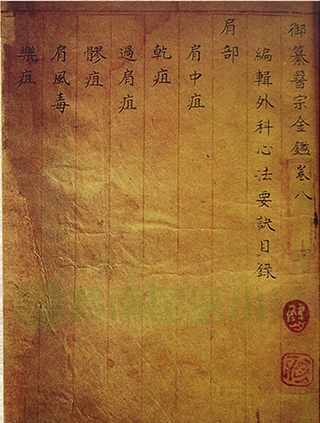 御纂醫宗金鑑卷八
編輯外科心法要訣目錄
肩部
肩中疽
乾疽
過肩疽
髎疽
肩風毒
樂疽